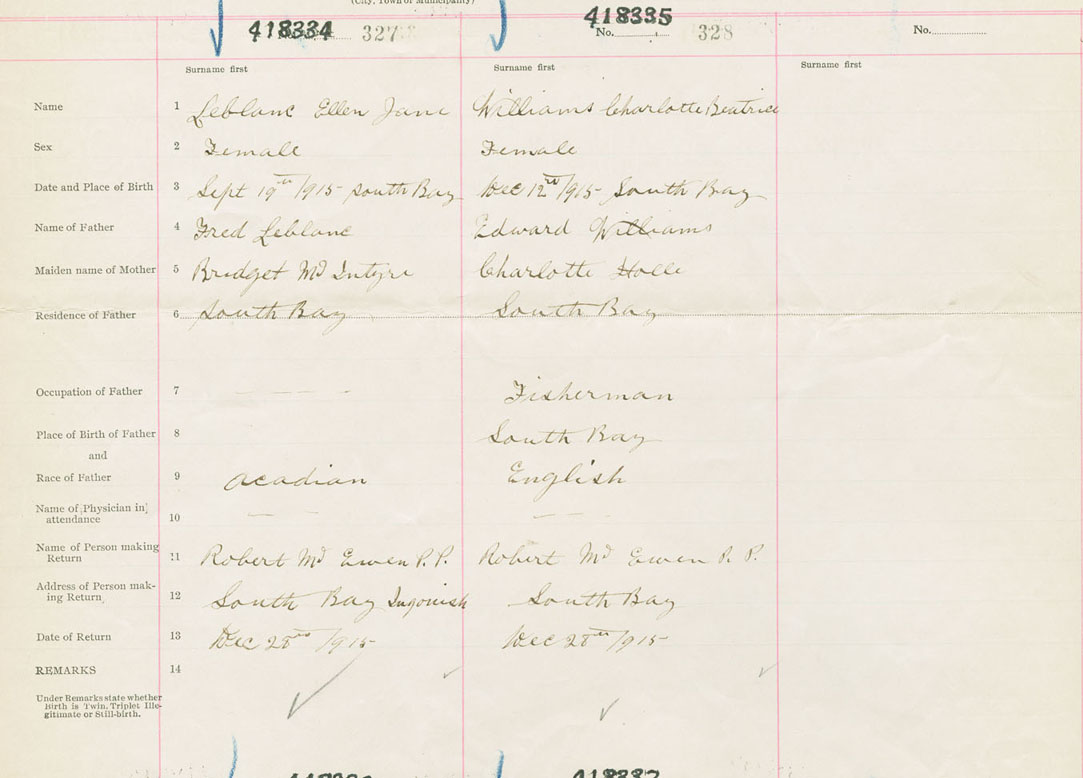 (City, Town or Municipality)
418334 No. 327 418335 No. 328 No.
Surname first Surname first Surname first
Name 1 Leblanc Ellen Jane Williams Charlotte Beatrice
Sex 2 Female Female
Date and Place of Birth 3 Sept 19th /915 South Bay Dec 12 /915 South Bay
Name of Father 4 Fred Leblanc Edward Williams
Maiden name of Mother 5 Bridget Mc Intyre Charlotte
Residence of Father 6 South Bay South Bay
Occupation of Father 7 Fisherman
Place of Birth of Father 8 South Bay
and
Race of Father 9 Acadian English
Name of Physician in
attendance 10
Name of Person making
Return 11 Robert Mc Ewen P.P. Robert Mc Ewen P. P.
Address of Person mak-
ing Return 12 South Bay Ingonish South Bay
Date of Return 13 Dec 28 /915 Dec 28th /915
REMARKS 14
Under Remarks state whether
Birth is Twin, Triplet Ille-
gitimate or Still-birth.